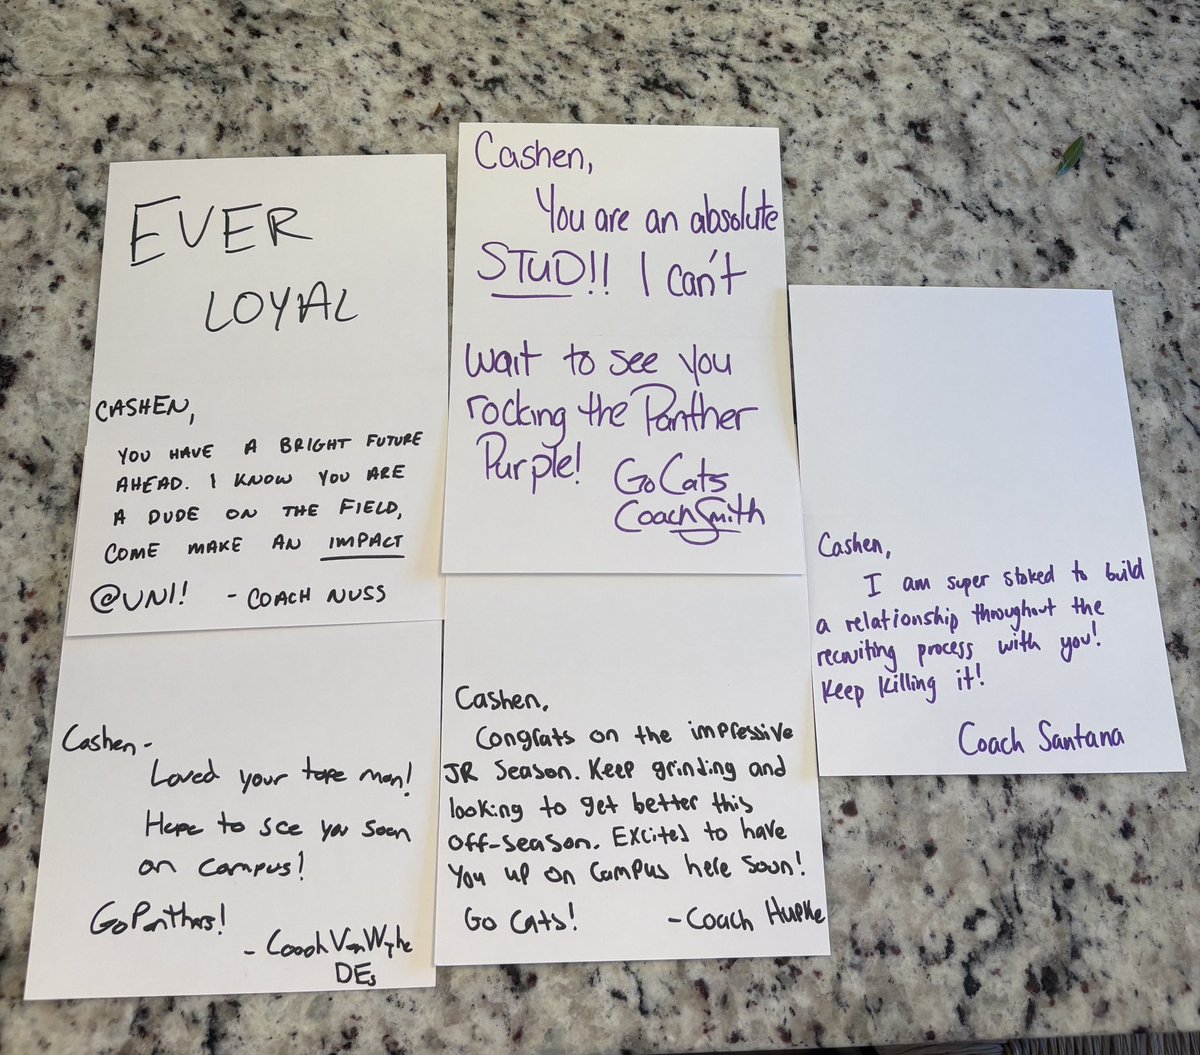 EVER
LOYAL
CASHEN,
YOU HAVE A BRIGHT FUTURE
AHEAD. I KNOW YOU ARE
A DUDE ON THE FIELD,
COME MAKE AN IMPACT
@UNI! - COACH NUSS
Cashen,
You are an absolute
STUD!! I can't
wait to see you
rocking the Panther
Purple!
Go Cats
Coach Smith
Cashen,
I am super stoked to build
a relationship throughout the
recruiting process with you!
Keep killing it!
Coach Santana
Cashen-
Loved your tape man!
Hope to see you soon
on campus!
Go Panthers!
- Coach VanWyhe
DEs
Cashen,
Congrats on the impressive
JR season. Keep grinding and
looking to get better this
off-season. Excited to have
you up on campus here soon!
Go Cats! -Coach Hupke